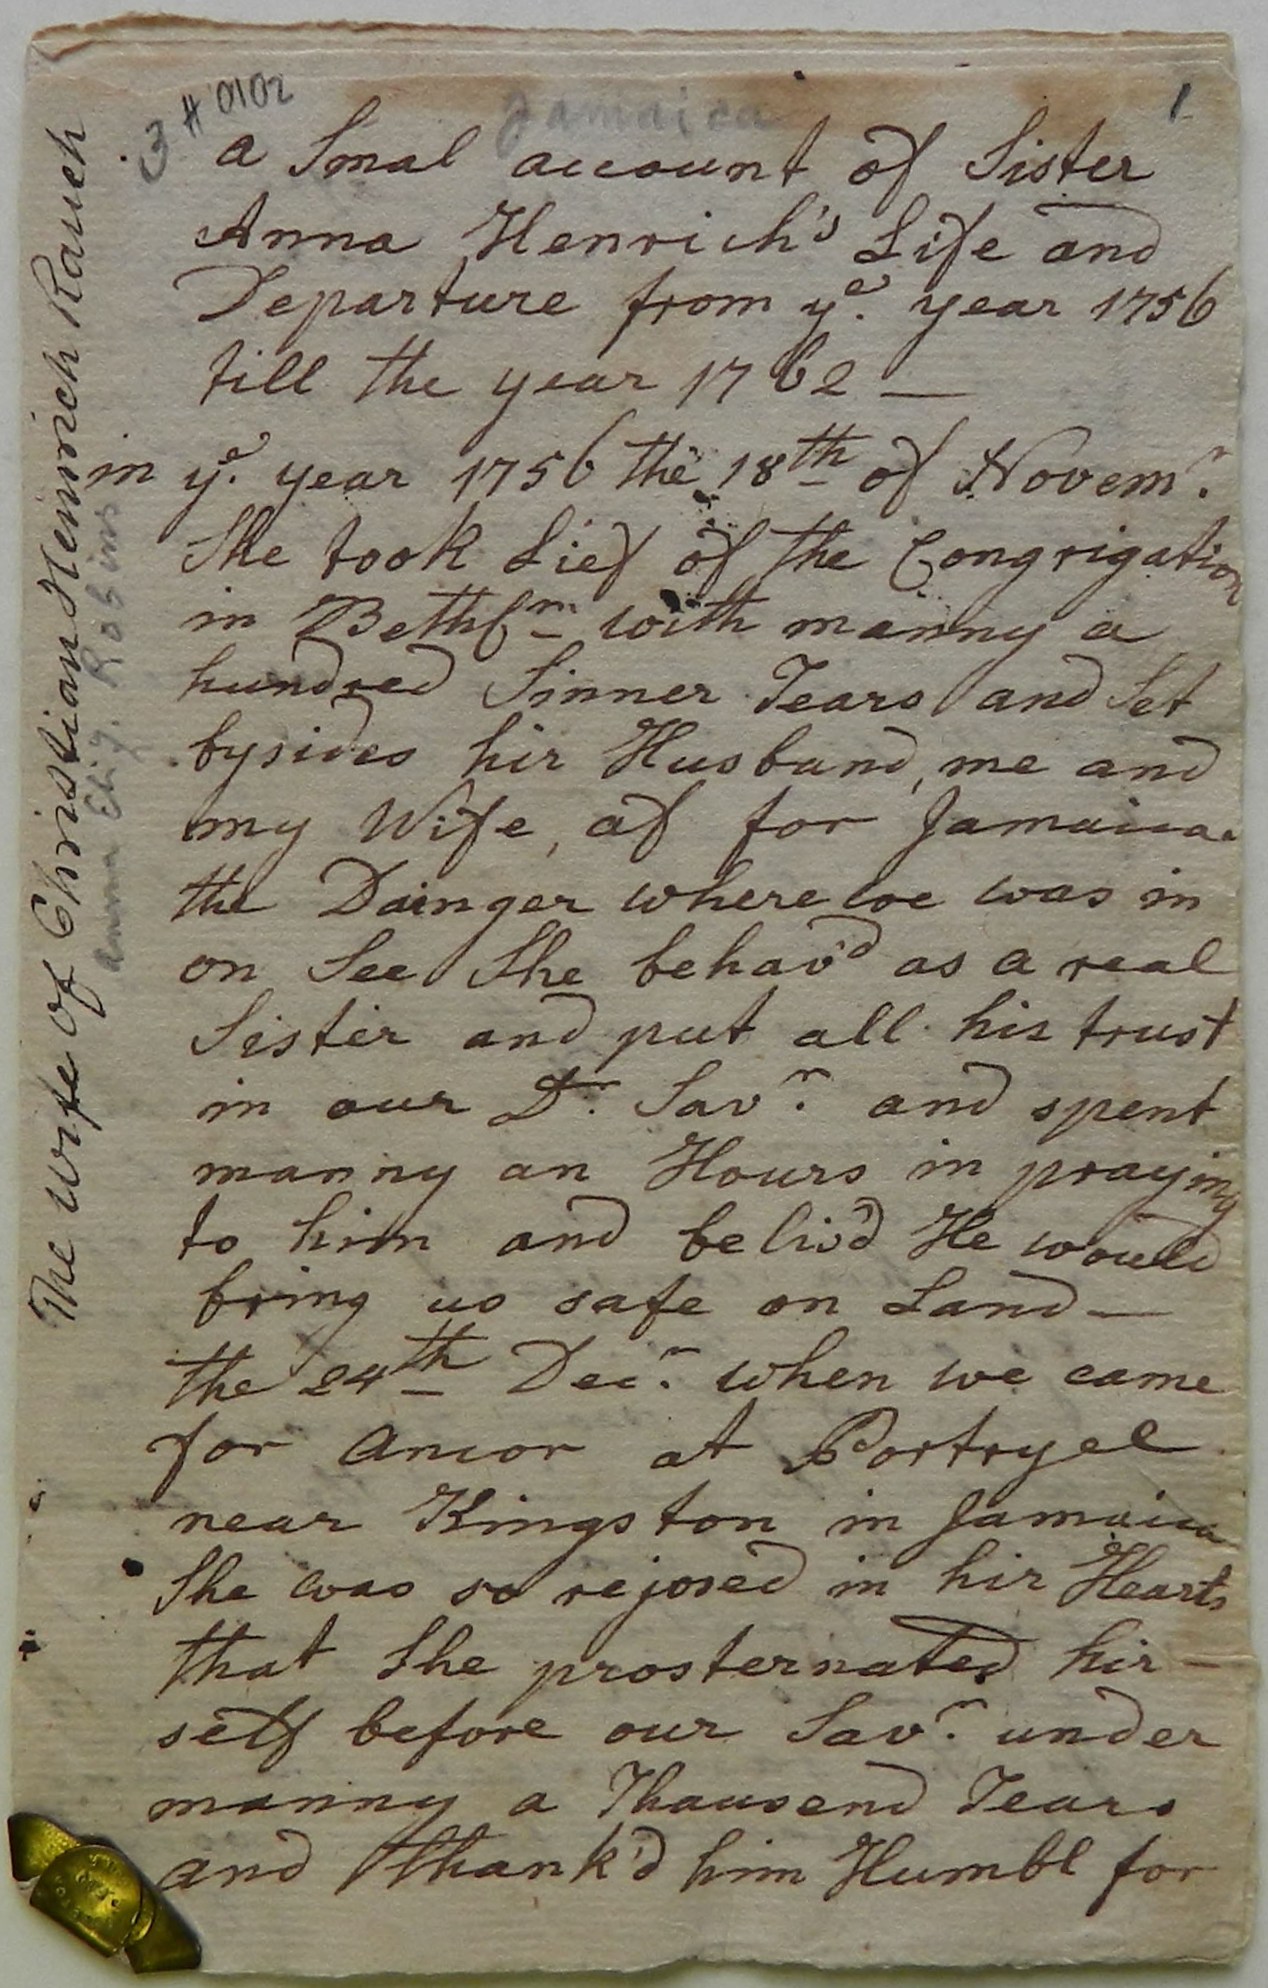 3 # 0102
Jamaica
1
a Smal account of Sister
Anna Henrich's Life and
Departure from ye. year 1756
till the year 1762 —
in ye. year 1756 the 18th of Novemr.
She took Lief of the Congrigation
in Bethlm with manny a
hundred Sinner Tears and Set
bysides hir Husband, me and
my Wife, of for Jamaica
the Dainger where we was in
on See She behav'd as a real
Sister and put all hir trust
in our Dr. Savr. and spent
manny an Hours in praying
to him and beliv'd He would
bring us safe on Land —
the 24th Decr. when we came
for Ancor at Portryel
near Kingston in Jamaica
She was so rejosed in hir Hearts
that She prosternated hir-
self before our Savr. under
manny a Thausend Tears
and thank'd him Humbl for
The wife of Christian Heinrich Rauch
Anna Eliz. Robins